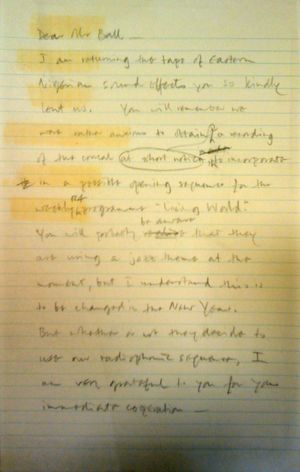 Dear Mr Ball —
I am returning the tape of Eastern
Nigerian sound effects you so kindly
lent us. You will remember we
were rather anxious to obtain a recording
of the at short notice to incorporate
in a possible opening sequence for the
weekly R4 programme "Living World".
be aware
You will probably that they
are using a jazz theme at the
moment, but I understand this is
to be changed in the New Year.
But whether or not they decide to
use our radiophonic sequence, I
am very grateful to you for your
immediate cooperation —